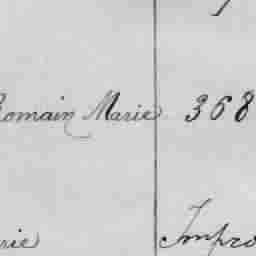 Romain Marie 368
rie Impro